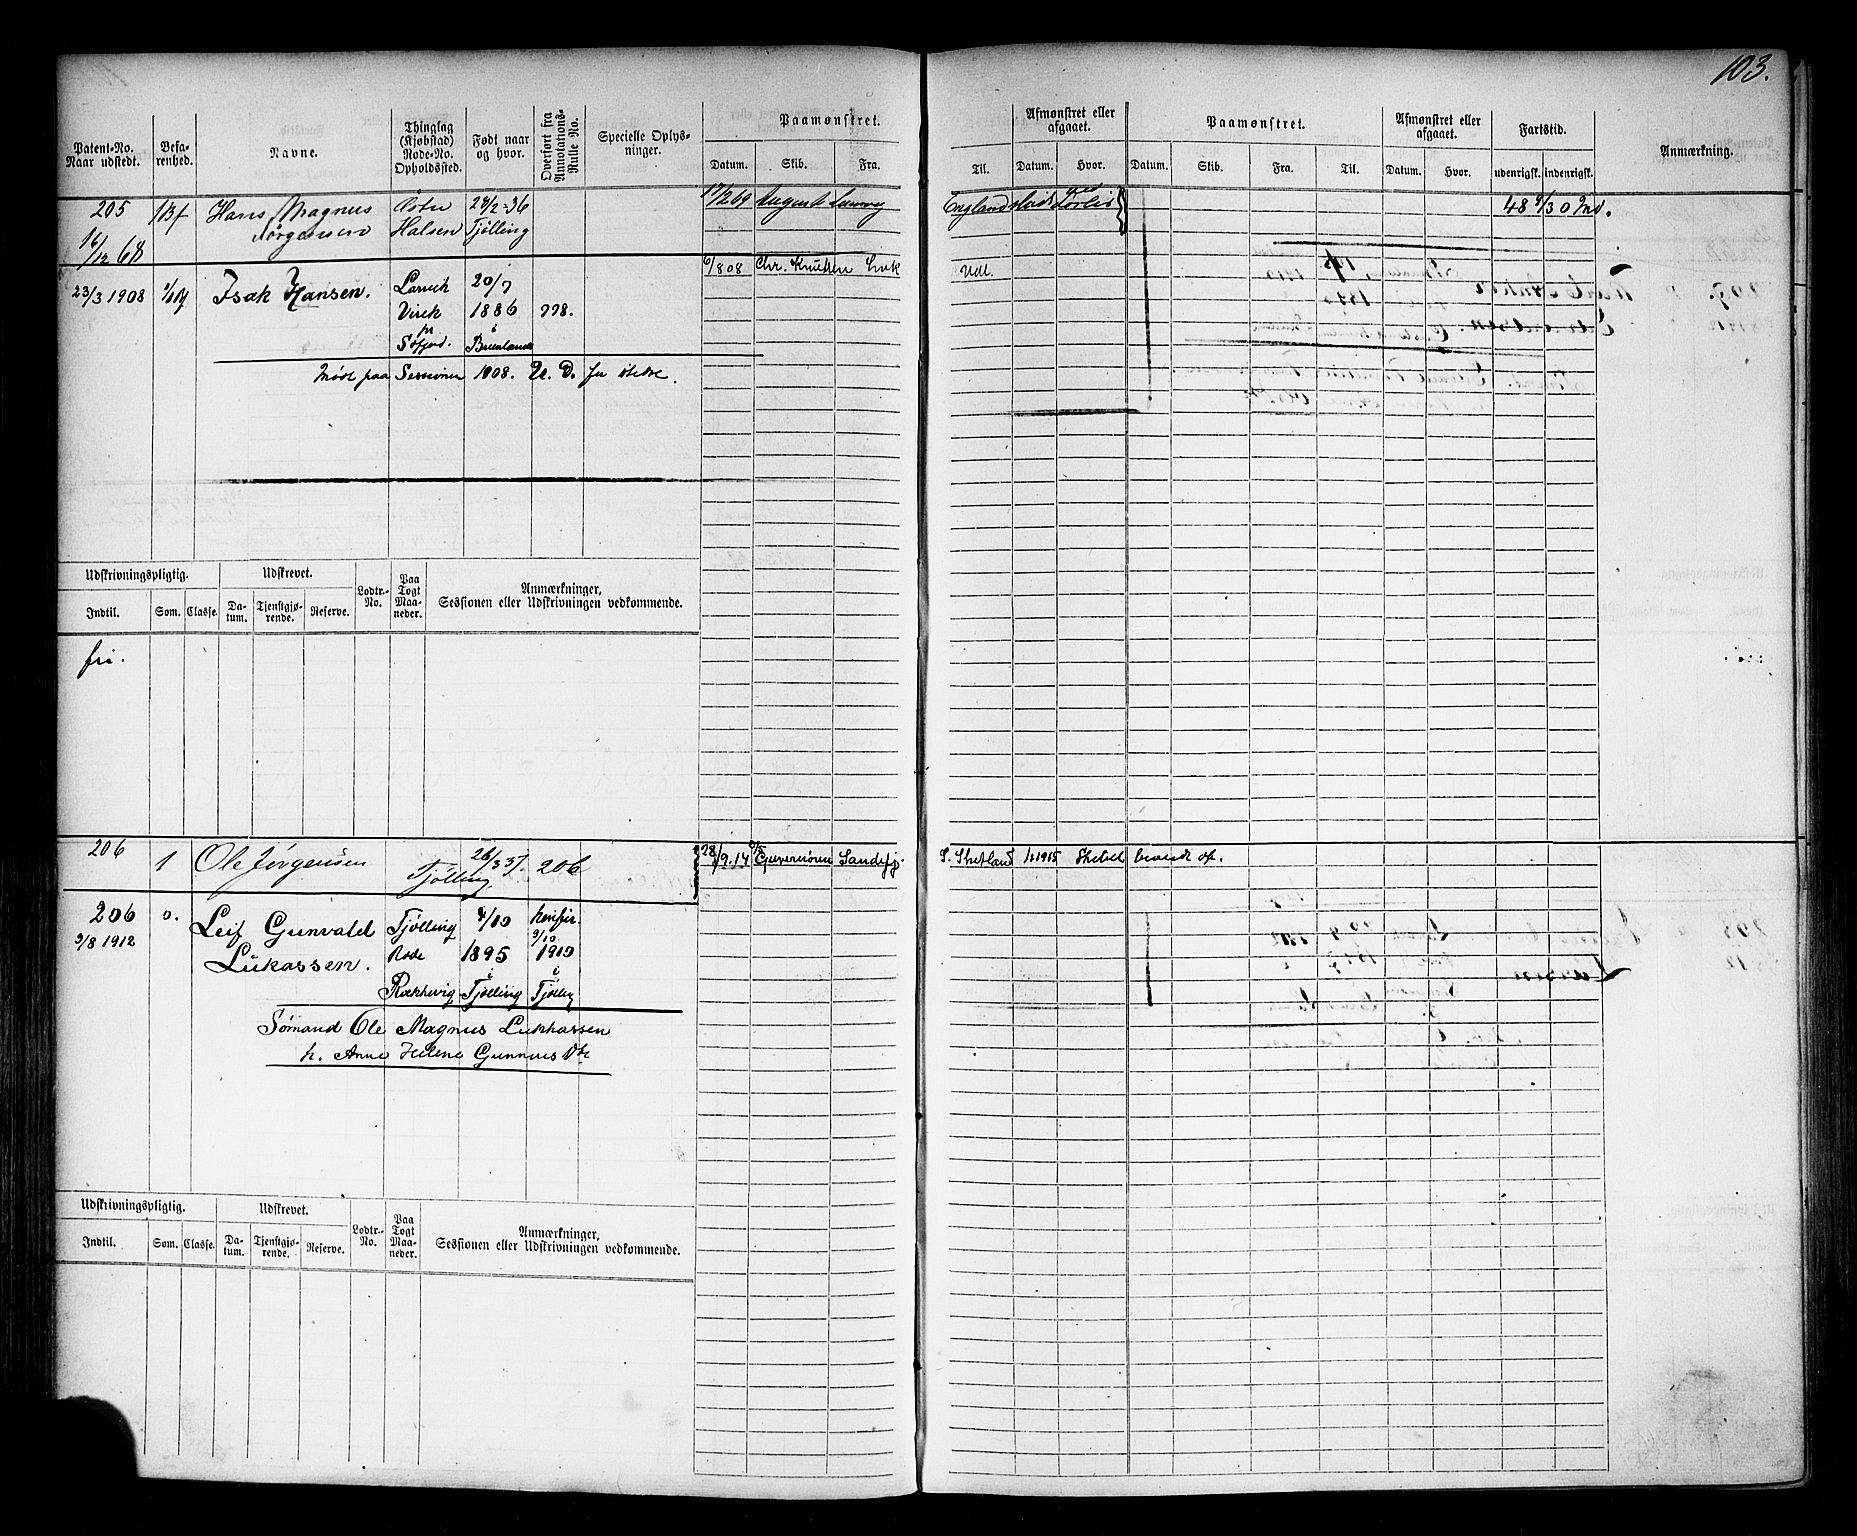 103.
Patent-No. Naar udstedt.
Befarenhed.
Navne.
Thinglag (Kjøbstad) Rode-No. Opholdssted.
Født naar og hvor.
Overført fra Annotations-Rulle No.
Specielle Oplysninger.
Paamønstret.
Datum. Skib. Fra. Til.
Afmønstret eller afgaaet.
Datum. Hvor.
Paamønstret.
Datum. Skib. Fra. Til.
Afmønstret eller afgaaet.
Datum. Hvor.
Fartstid.
udenrigsk. indenrigsk.
Anmærkning.
205 Hans Magnus 23/2-36 17/2 69 August England
16/12 68 Jørgensen Halsen Tjølling
6/8 08 Chr. Knudsen Udl.
23/3 1908 Isak Hansen. Larvik 20/7
Virik 1886 778.
Møde paa Sessionen 1908. U. D. for
Udskrivningspligtig. Udskrevet. Lodtr.-No. Paa Togt Maaneder. Anmærkninger, Sessionen eller Udskrivningen vedkommende.
Indtil. Som. Classe. Datum. Tjenstgjørende. Reserve.
fri.
206 1 Ole Jørgensen Tjølling 26/3 37. 206 28/9.14 Guvernøren Sandefj. S. Shetland 1915 Skibet
206 0. Leif Gunvald Tjølling 4/10
9/8 1912 Lukassen. Rode 1895 1910
Rækkevig Tjølling Tjølling
Sømand Ole Magnus Lukkassen
h. Anne Helene
Udskrivningspligtig. Udskrevet. Lodtr.-No. Paa Togt Maaneder. Anmærkninger, Sessionen eller Udskrivningen vedkommende.
Indtil. Som. Classe. Datum. Tjenstgjørende. Reserve.